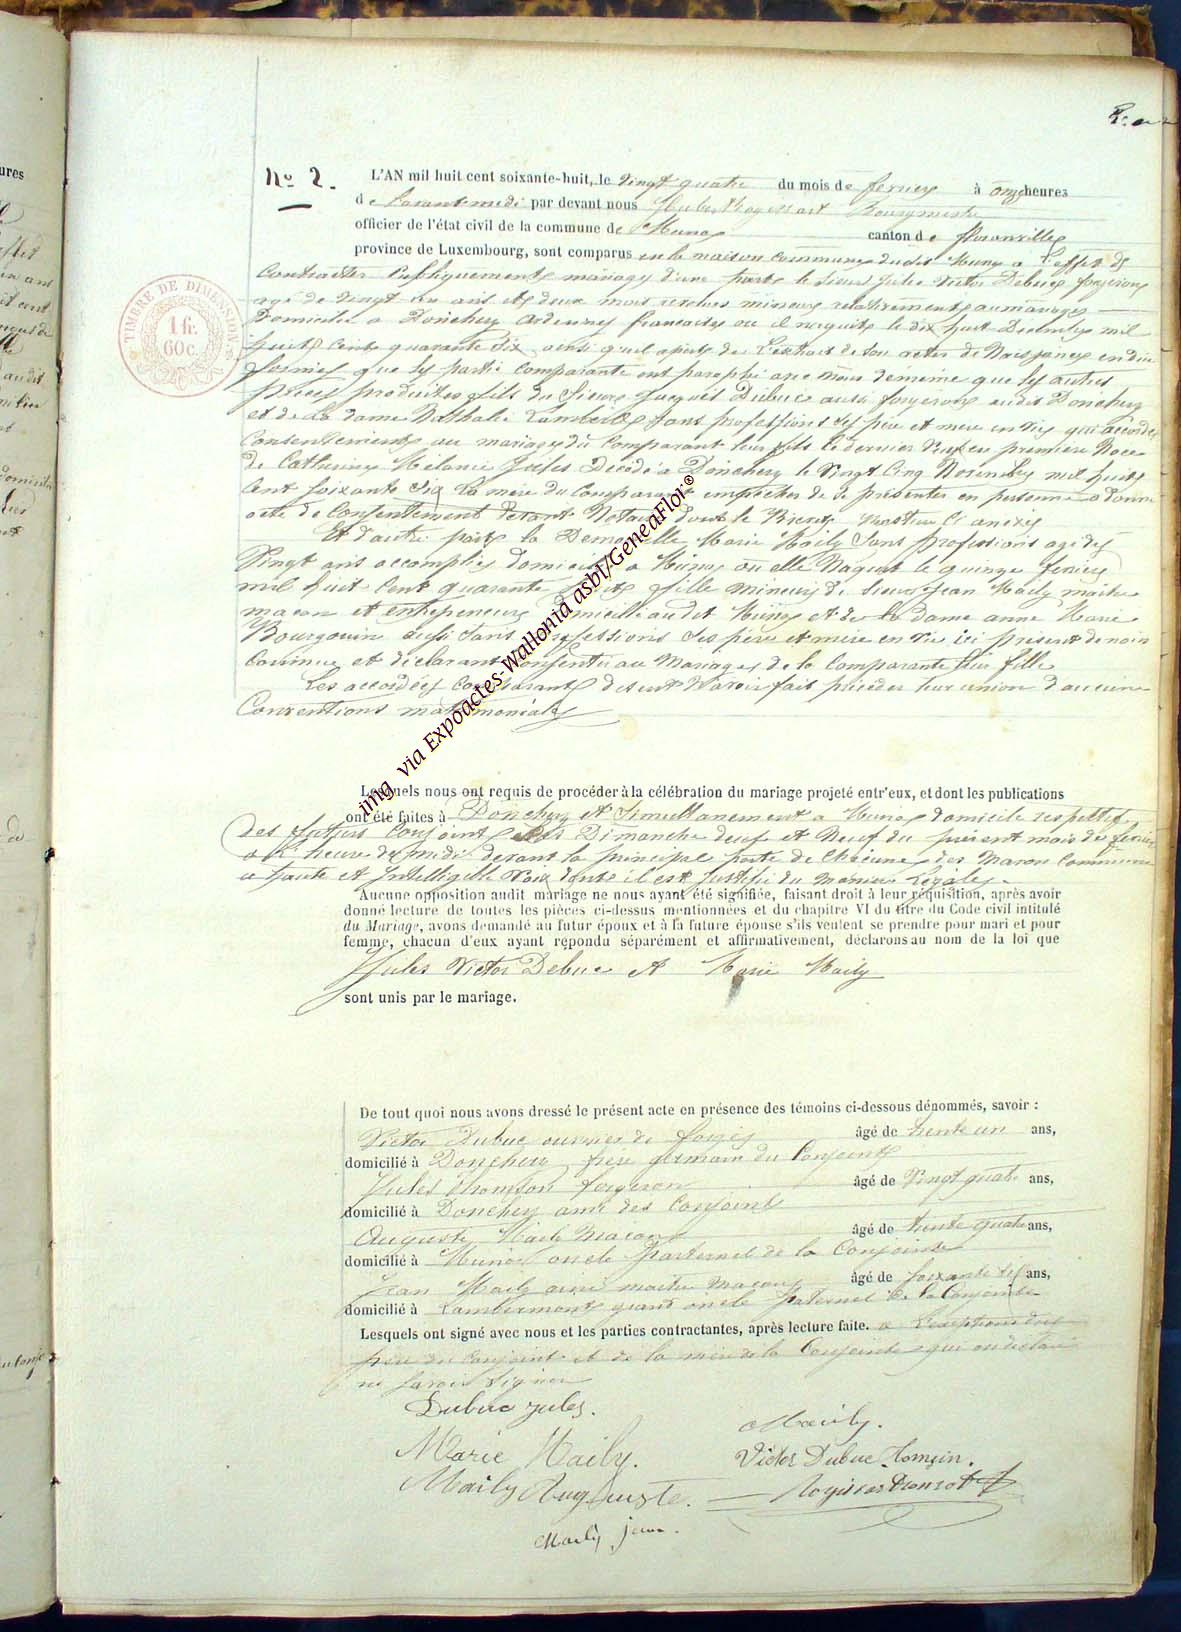 N° 2.
L'AN mil huit cent soixante-huit, le vingt quatre du mois de fevrier à onze heures
de L'avant midi par devant nous Bourgmestre
officier de l'état civil de la commune de Muno canton de Florenville
province de Luxembourg, sont comparus en la maison commune dudit Muno a L'effet de
Contracter Publiquement mariage d'une part le sieur Jules Victor Debuc forgeron
agé de vingt un ans et deux mois revolus mineur relativement au mariage
Domicilié a Donchery Ardennes francaises ou il naquit le dix huit Décembre mil
huit cent quarante six ainsi qu'il apert de L'extrait de son acte de Naissance en due
formes que les partie comparante ont paraphé avec nous de meme que les autres
pieces produites fils du Sieur Jacques Dubuc aussi forgeron audit Donchery
et de La dame Nathalie Lambert sans professions ses pere et mere en vie qui accorde
Consentement au mariage du Comparant leur fils le dernier Veuf en premiere Noce
de Catherine Mélanie Decédé a Donchery le vingt Cinq Novembre mil huit
Cent soixante Six La mere du Comparant empecher de se presenter en personne a donné
acte de Consentement devant Notaire dont le Brevet ci anixé
Et d'autre part la Demoiselle Marie Maily Sans professions agé de
Vingt ans accomplies domicilié a Muno ou elle Naquit le quinze fevrier
mil huit Cent quarante huit fille mineur de Sieur Jean Maily maitre
macon et entrepreneur Domicilié audit Muno et de la dame anne Marie
Bourgouin aussi sans professions ses père et mère en vie ici present
et déclarant Consentir au Mariage de la Comparante leur fille
Les accordées Comparant disent N'avoir fait précéder leur union d'aucune
Conventions matrimoniales
Lesquels nous ont requis de procéder à la célébration du mariage projeté entr'eux, et dont les publications
ont été faites à Donchery et Simultanement a Muno domicile respectif
des futurs Conjoint Les Dimanche deux et Neuf du présent mois de fevrier
a L'heure de midi devant la principal porte de Chacune des Maison Commune
a haute et Intelligible Voix
Aucune opposition audit mariage ne nous ayant été signifiée, faisant droit à leur réquisition, après avoir
donné lecture de toutes les pièces ci-dessus mentionnées et du chapitre VI du titre du Code civil intitulé
du Mariage, avons demandé au futur époux et à la future épouse s'ils veulent se prendre pour mari et pour
femme, chacun d'eux ayant répondu séparément et affirmativement, déclarons au nom de la loi que
Jules Victor Debuc et Marie Maily
sont unis par le mariage.
De tout quoi nous avons dressé le présent acte en présence des témoins ci-dessous dénommés, savoir :
Victor Dubuc ouvrier de forges âgé de trente un ans,
domicilié à Donchery frère germain du Conjoint
Jules Thomson forgeron âgé de Vingt quatre ans,
domicilié à Donchery ami des Conjoint
Auguste Maily Macon âgé de trente quatre ans,
domicilié à Muno oncle Paternel de la Conjointe
Jean Maily ainé maitre macon âgé de soixante six ans,
domicilié à Lambermont grand oncle Paternel de la Conjointe
Lesquels ont signé avec nous et les parties contractantes, après lecture faite. a L'exception du
pere du Conjoint et de la mere de la Conjointe qui on declaré
ne savoir Signer
Dubuc jules.
Maily.
Marie Maily.
Victor Dubuc
Maily Auguste.
Maily jean.
TIMBRE DE DIMENSION
1 fr.
60 c.
img via Expoactes-Wallonia asbl/GeneaFlor®